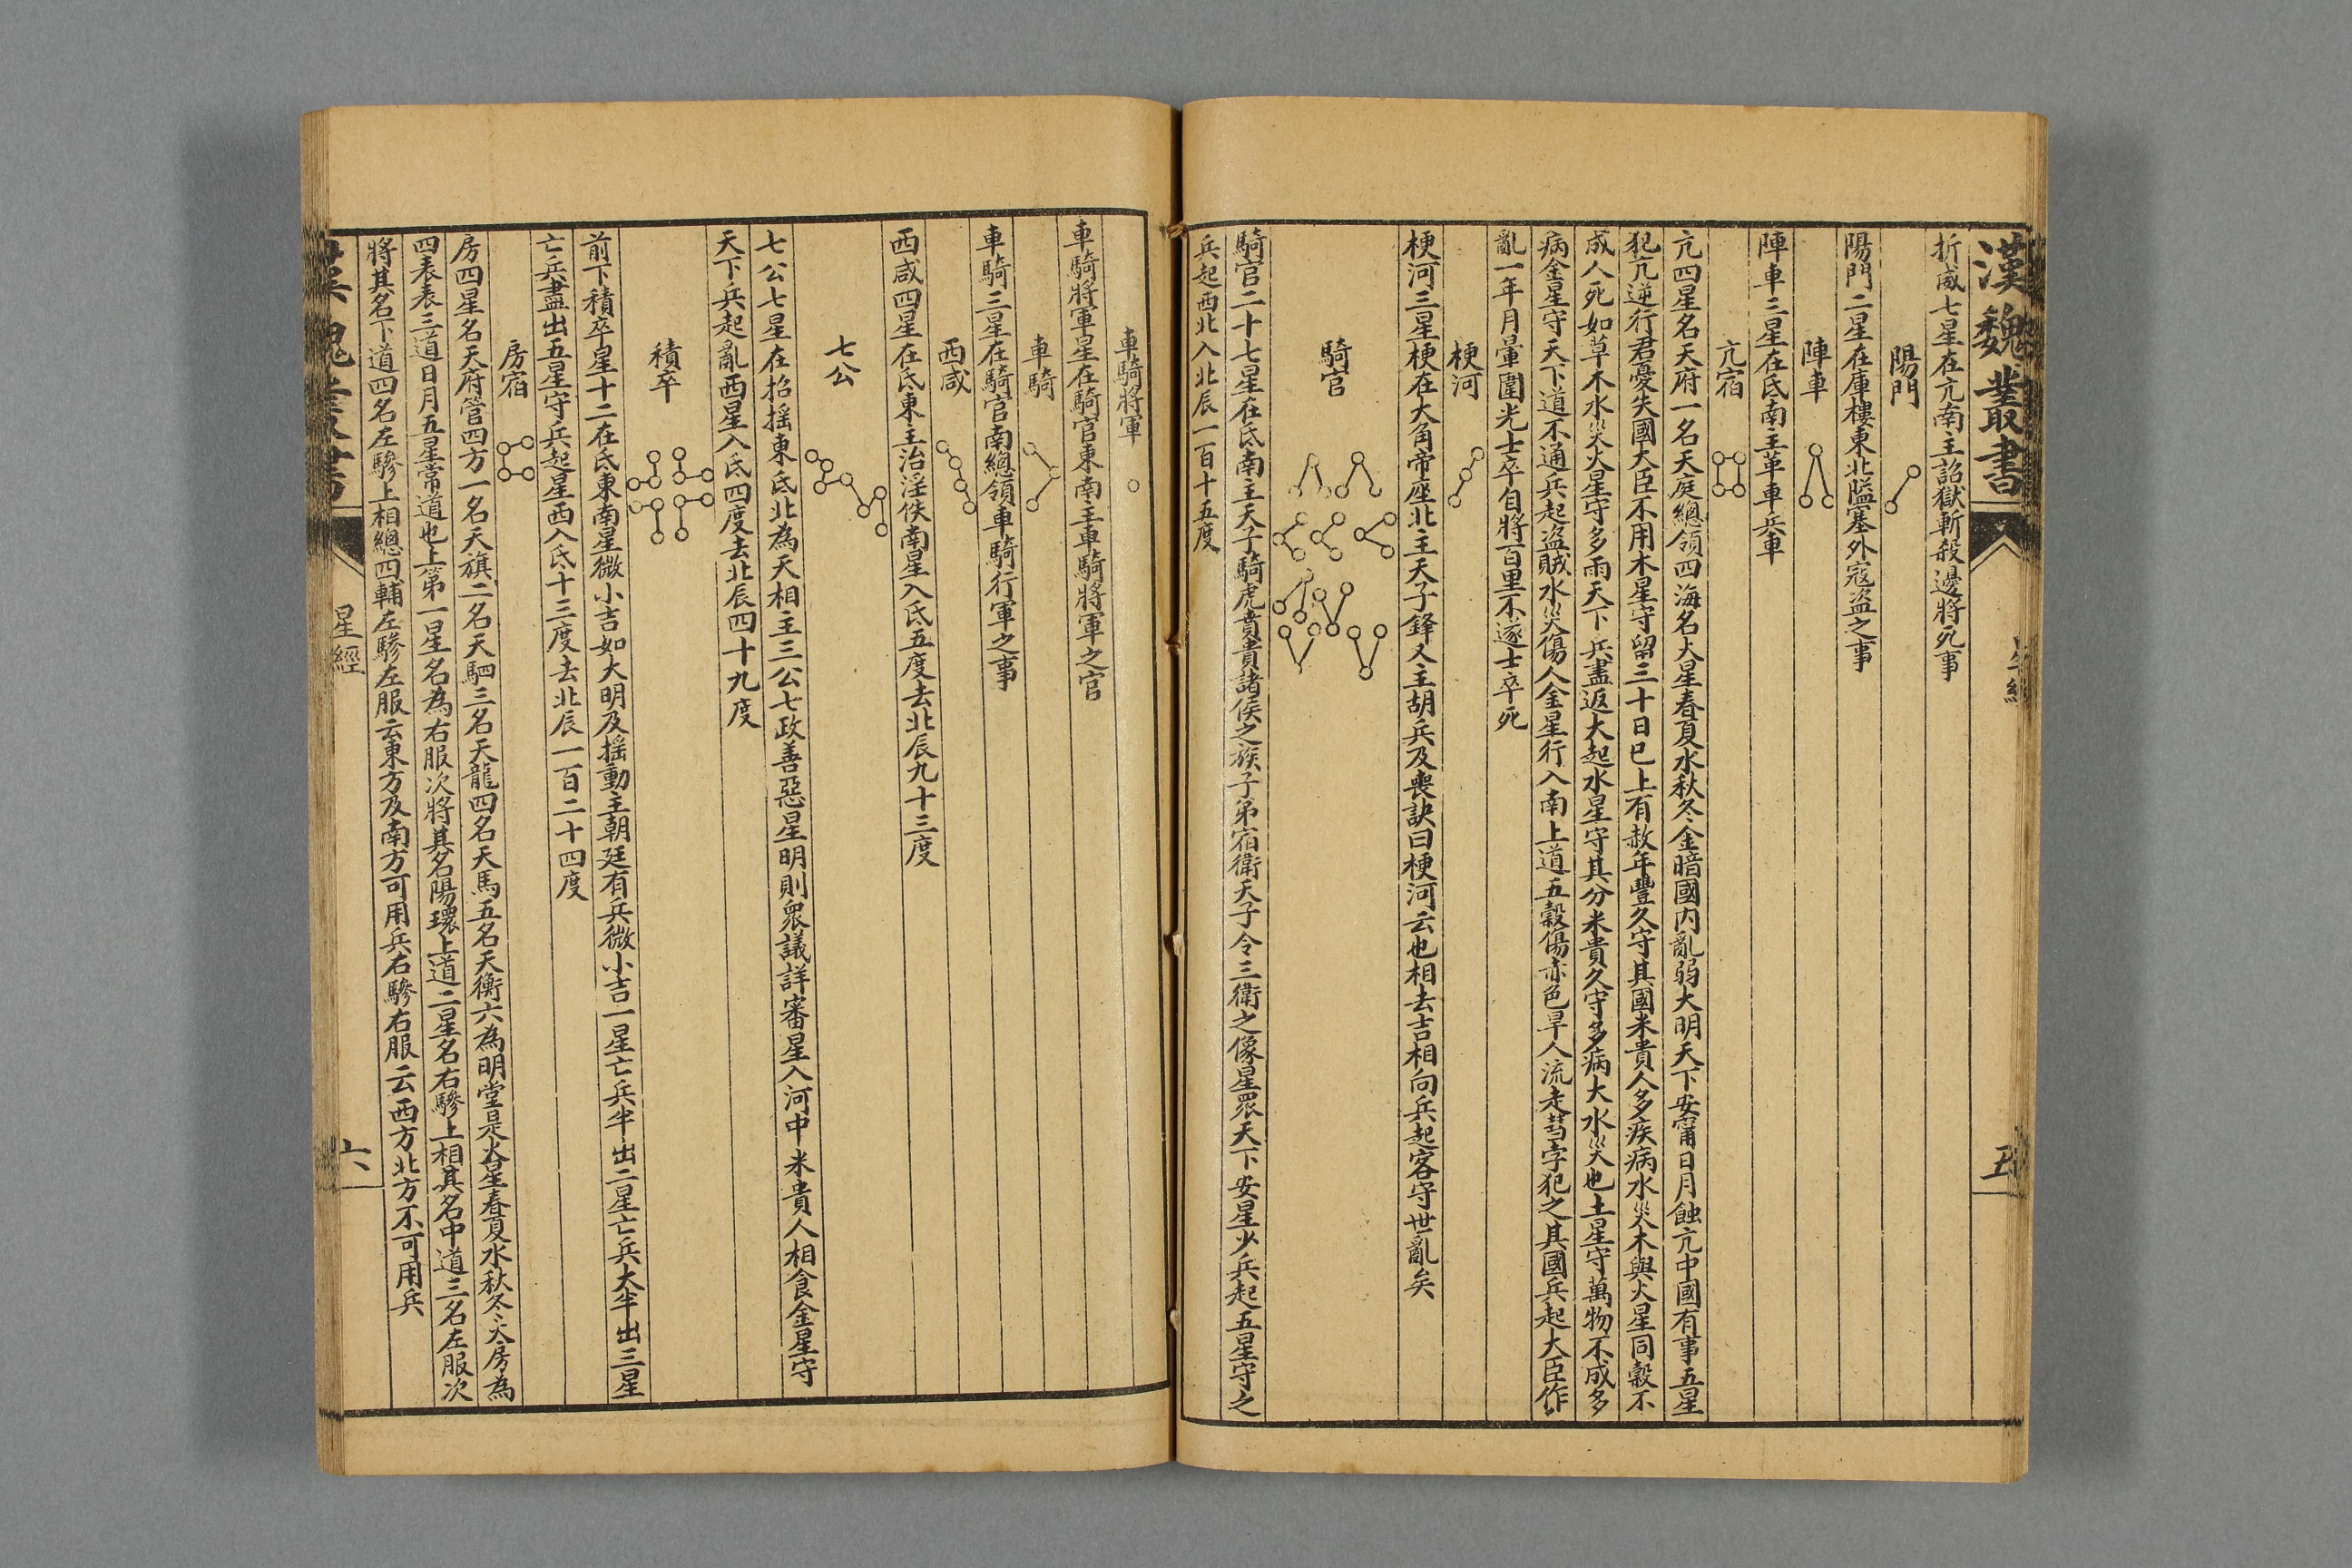 漢魏叢書
五
折威七星在亢南主詔獄斬殺邊將死事
陽門
陽門二星在庫樓東北隘塞外寇盜之事
陣車
陣車三星在氐南主革車兵車
亢宿
亢四星名天府一名天庭總領四海名火星春夏水秋冬金暗國內亂弱大明天下安甯日月蝕亢中國有事五星
犯亢逆行君憂失國大臣不用木星守留三十日已上有赦年豐久守其國米貴人多疾病水災木與火星同穀不
成人死如草木水災火星守多雨天下兵盡返大起水星守其分米貴久守多病大水災也土星守萬物不成多
病金星守天下道不通兵起盜賊水災傷人金星行入南上道五穀傷赤色旱人流走芎孛犯之其國兵起大臣作
亂一年月暈圍光士卒自將百里不逐士卒死
梗河
梗河三星梗在大角帝座北主天子鋒又主胡兵及喪訣曰梗河云也相去吉相向兵起客守世亂矣
騎官
騎官二十七星在氐南主天子騎虎賁貴諸侯之族子弟宿衛天子令三衛之像星眾天下安星少兵起五星守之
兵起西北入北辰一百十五度
車騎將軍
車騎將軍星在騎官東南主車騎將軍之官
車騎
車騎三星在騎官南總領車騎行軍之事
西咸
西咸四星在氐東主治淫佚南星入氐五度去北辰九十三度
七公
七公七星在招搖東氐北為天相主三公七政善惡星明則眾議詳審星入河中米貴人相食金星守
天下兵起亂西星入氐四度去北辰四十九度
積卒
前下積卒星十二在氐東南星微小吉如大明及搖動主朝廷有兵微小吉一星亡兵半出二星亡兵大半出三星
亡兵盡出五星守兵起星西入氐十三度去北辰一百二十四度
房宿
房四星名天府管四方一名天旗二名天駟三名天龍四名天馬五名天衡六為明堂是火星春夏水秋冬火房為
四表表三道日月五星常道也上第一星名為右服次將其名陽環上道二星名右驂上相其名中道三名左服次
將其名下道四名左驂上相總四輔左驂左服云東方及南方可用兵右驂右服云西方北方不可用兵
星經
六